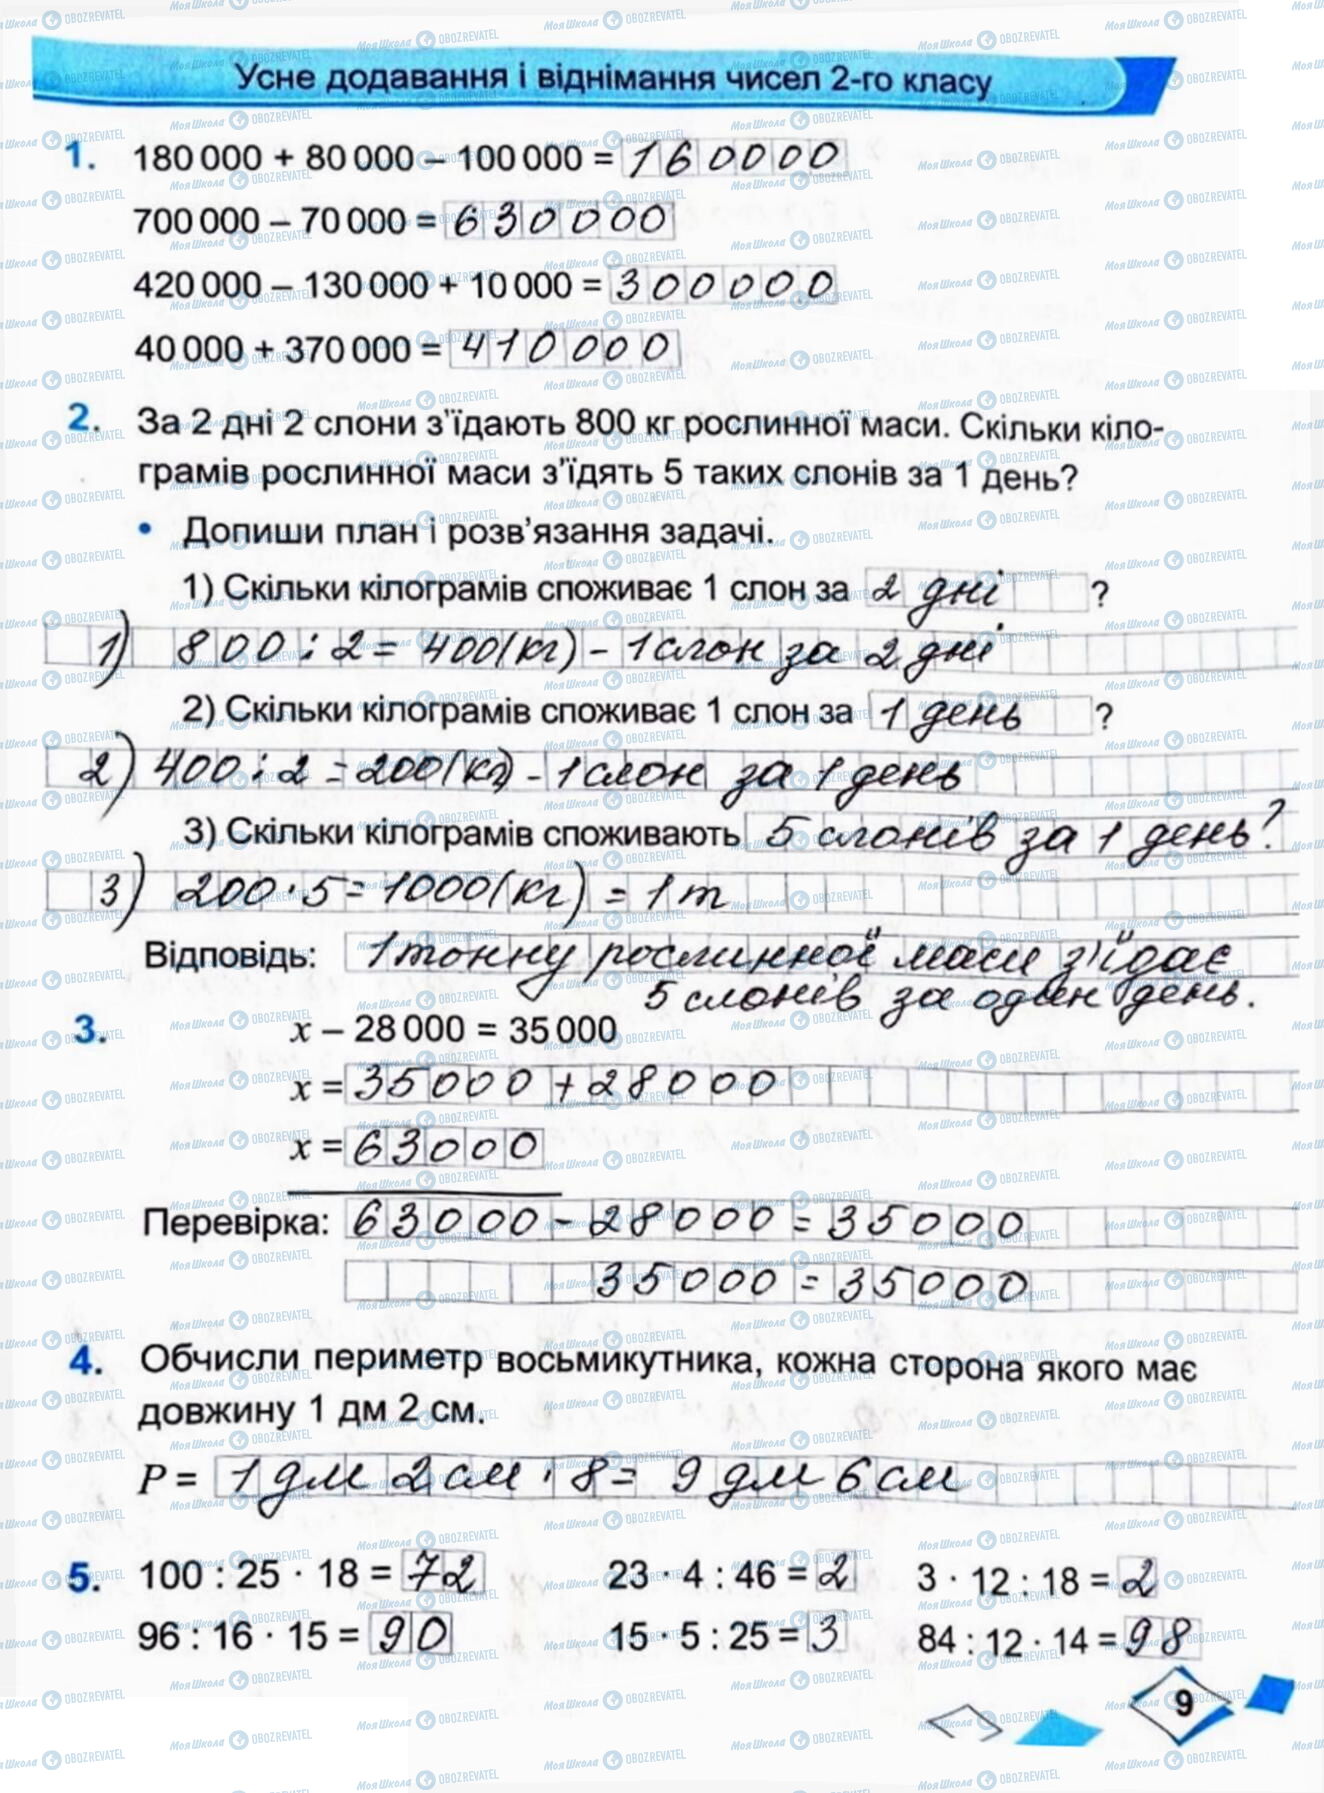 Усне додавання і віднімання чисел 2-го класу
1. 180 000 + 80 000 – 100 000 = 160000
700 000 – 70 000 = 630000
420 000 – 130 000 + 10 000 = 300000
40 000 + 370 000 = 410000
2. За 2 дні 2 слони з’їдають 800 кг рослинної маси. Скільки кіло-
грамів рослинної маси з’їдять 5 таких слонів за 1 день?
• Допиши план і розв’язання задачі.
1) Скільки кілограмів споживає 1 слон за 2 дні ?
1) 800 : 2 = 400 (кг) – 1 слон за 2 дні
2) Скільки кілограмів споживає 1 слон за 1 день ?
2) 400 : 2 = 200 (кг) – 1 слон за 1 день
3) Скільки кілограмів споживають 5 слонів за 1 день?
3) 200 · 5 = 1000 (кг) = 1 т
Відповідь: 1 тонну рослинної маси з’їдає
5 слонів за один день.
3. x – 28 000 = 35 000
x = 35000 + 28000
x = 63000
Перевірка: 63000 – 28000 = 35000
35000 = 35000
4. Обчисли периметр восьмикутника, кожна сторона якого має
довжину 1 дм 2 см.
P = 1 дм 2 см · 8 = 9 дм 6 см
5. 100 : 25 · 18 = 72 23 · 4 : 46 = 2 3 · 12 : 18 = 2
96 : 16 · 15 = 90 15 · 5 : 25 = 3 84 : 12 · 14 = 98
9
МояШкола OBOZREVATEL